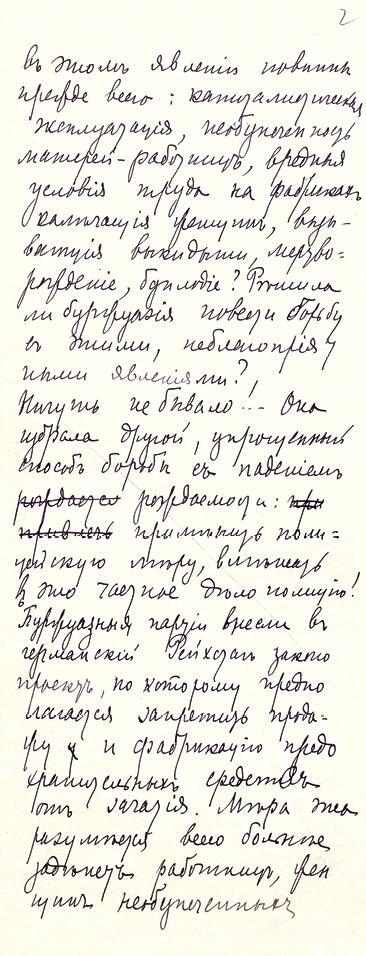 2
въ этомъ явленіи повинны
прежде всего: капиталистическая
эксплуатація, необузпечен ность
матерей-работницъ, вредныя
условія труда на фабрикахъ
калѣчащія женщинъ, вызы-
вающія выкидыши, мертво-
рожденіе, безплодіе? Рѣшила
ли буржуазія повести борьбу
съ этими, неблагопрія
тными явленіями?,
Ничуть не бывало!.. Она
избрала другой, упрощенный
способъ борьбы съ паденіемъ
рождается рождаемости: при
привлечь примѣнить поли-
цейскую мѣру, вмѣшать
въ это частное дѣло полицію!
Буржуазныя партіи внесли въ
германскій Рейхстагъ законо
проектъ, по которому предпо
лагается запретить прода-
жу и фабрикацію предо
хранительныхъ средствъ
отъ зачатія. Мѣра эта
разумѣется всего больнѣе
задѣнетъ работницъ, жен
щинъ необезпеченныхъ